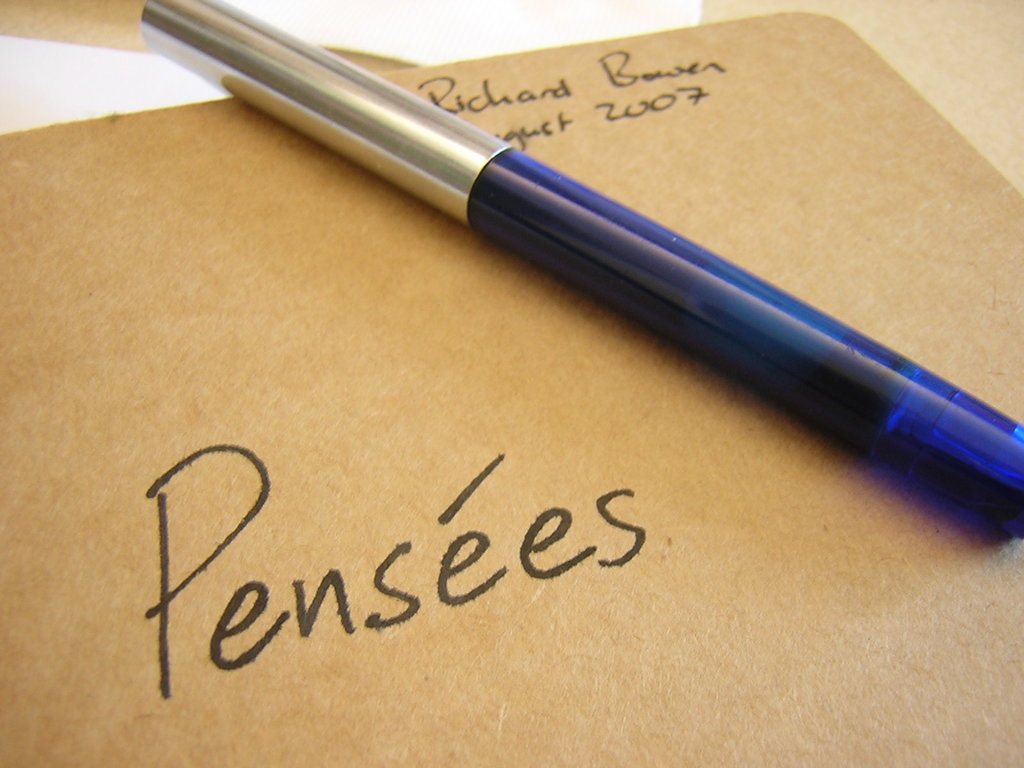 Richard Bowen
August 2007
Pensées